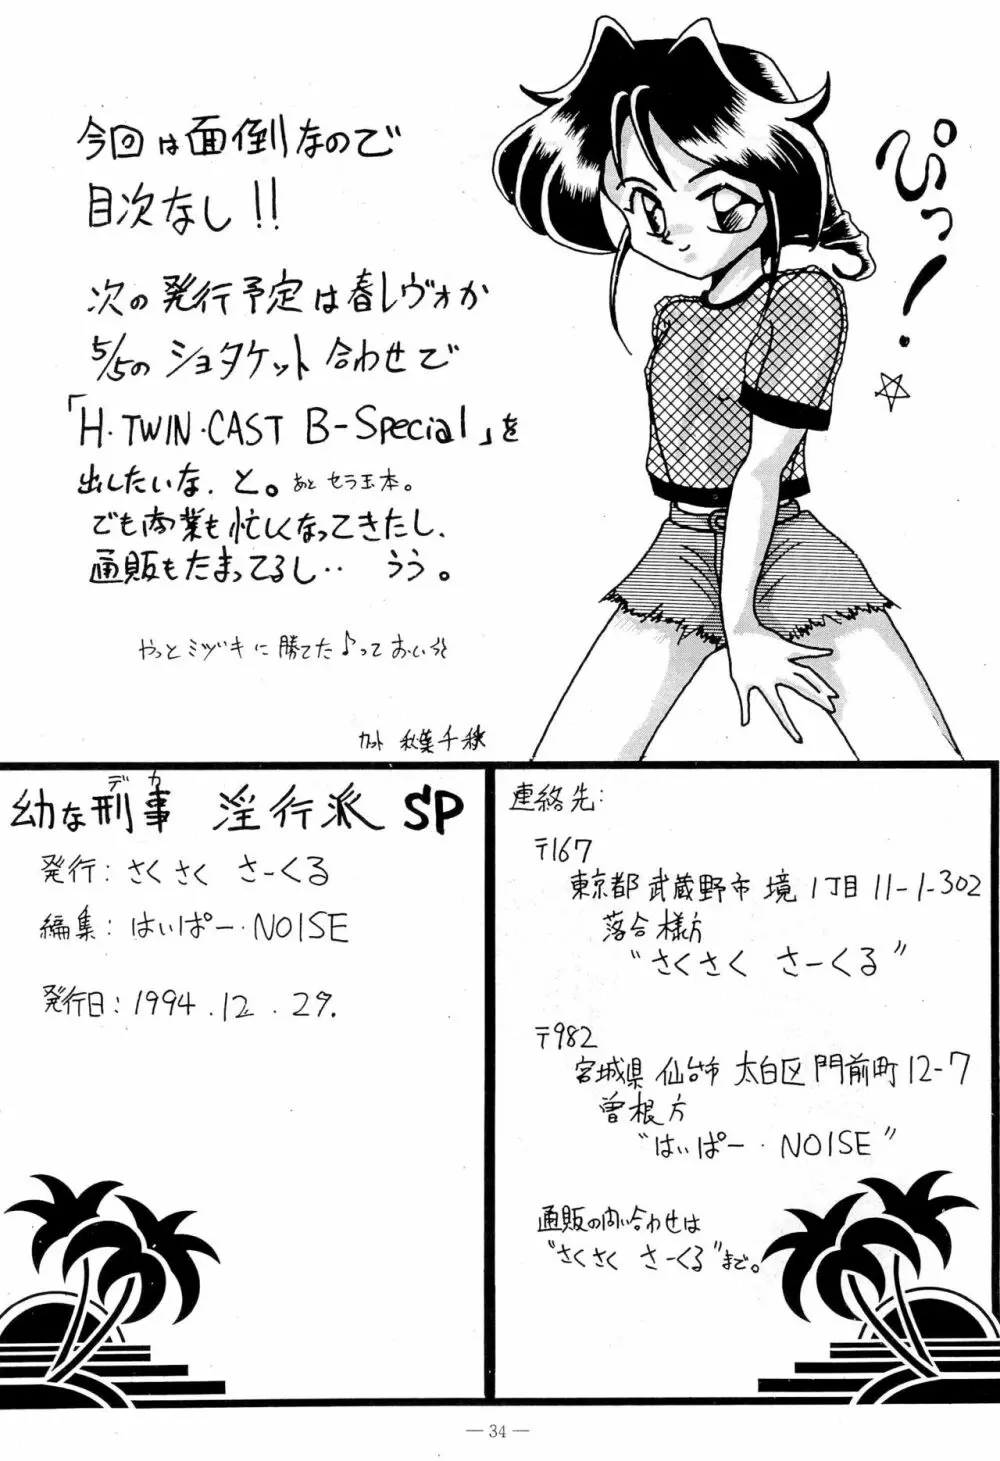 今回は面倒なので
目次なし!!
次の発行予定は春レヴォか
5/5のショタケット合わせで
「H・TWIN・CAST B-Special」を
出したいな、と。あと セラ玉本。
でも肉業も忙しくなってきたし、
通販もたまってるし‥ うう。
やっとミヅキに勝てた♪っておい
カット 秋葉千秋
ぴっ!
デカ
幼な刑事 淫行派 SP
発行: さくさく さーくる
編集: はぃぱー・NOISE
発行日: 1994.12.29.
連絡先:
〒167
東京都 武蔵野市 境 1丁目 11-1-302
落合様方
“さくさく さーくる”
〒982
宮城県 仙台市 太白区 門前町 12-7
曽根方
“はぃぱー・NOISE”
通販の問い合わせは
“さくさく さーくる”まで。
— 34 —